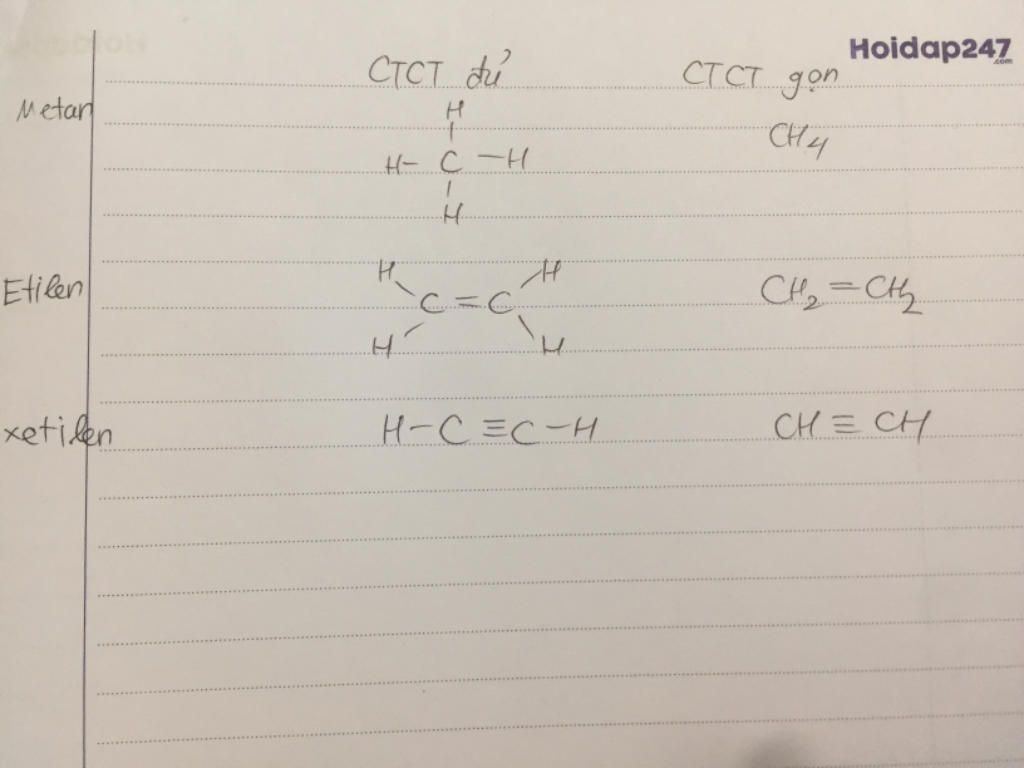 Hoidap247
.com
CTCT đủ CTCT gọn
Metan
H
H- C -H
H
CH4
Etilen
H H
C = C
H H
CH2 = CH2
xetilen H-C≡C-H CH≡CH